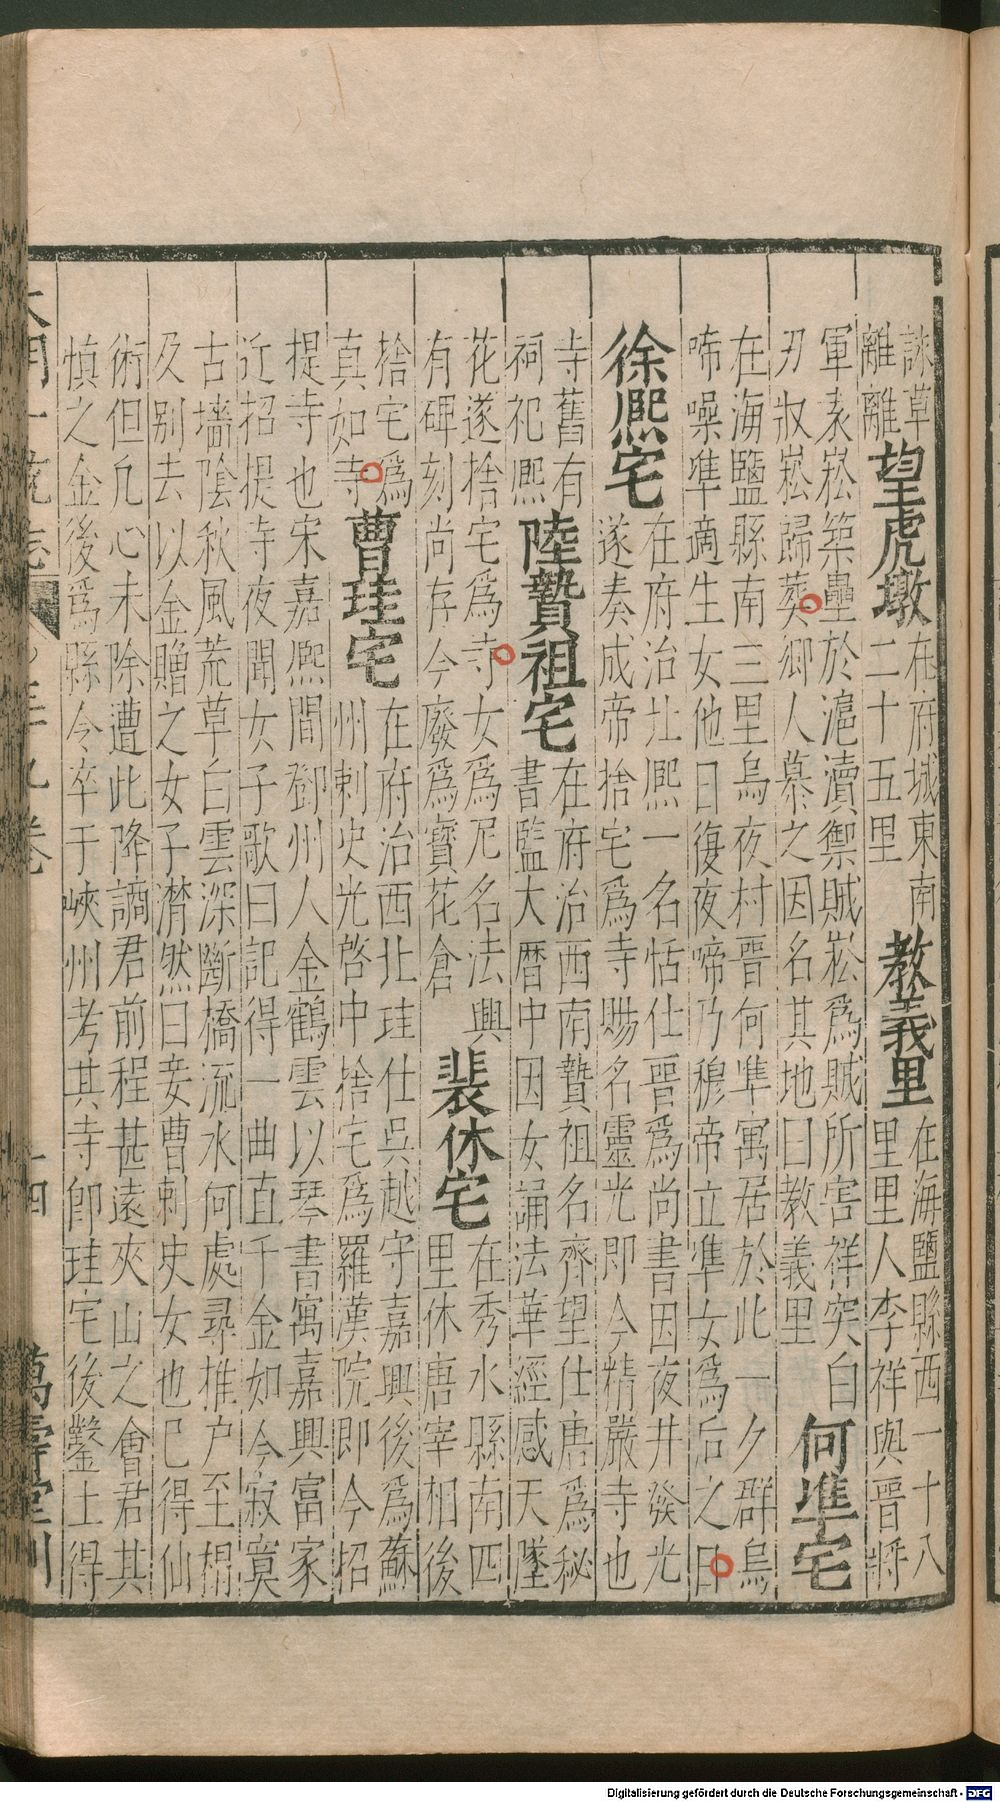 誅草
離離
望虎墩
在府城東南
二十五里
教義里
在海鹽縣西一十八
里里人李祥與晉將
軍袁崧築壘於滬瀆禦賊崧為賊所害祥突白
刃収崧歸葬鄉人慕之因名其地曰教義里
何準宅
在海鹽縣南三里烏夜村晉何準寓居於此一夕群烏
啼噪準適生女他日復夜啼乃穆帝立準女為后之日
徐熈宅
在府治北熈一名恬仕晉為尚書因夜井發光
遂奏成帝捨宅為寺賜名靈光即今精嚴寺也
寺舊有
祠祀熈
陸贄祖宅
在府治西南贄祖名齊望仕唐為秘
書監大曆中因女誦法華經感天墜
花遂捨宅為寺女為尼名法興
有碑刻尚存今廢為寶花倉
裴休宅
在秀水縣南四
里休唐宰相後
捨宅為
真如寺
曹珪宅
在府治西北珪仕吳越守嘉興後為蘇
州刺史光啓中捨宅為羅漢院即今招
提寺也宋嘉熈間鄧州人金鶴雲以琴書寓嘉興富家
近招提寺夜聞女子歌曰記得一曲直千金如今寂寞
古墻陰秋風荒草白雲深斷橋流水何處尋推户至榻
及别去以金贈之女子潸然曰妾曹刺史女也已得仙
術但凢心未除遭此降謫君前程甚遠夾山之會君其
慎之金後為縣令卒于峽州考其寺即珪宅後鑿土得
萬壽堂刊
Digitalisierung gefördert durch die Deutsche Forschungsgemeinschaft - DFG